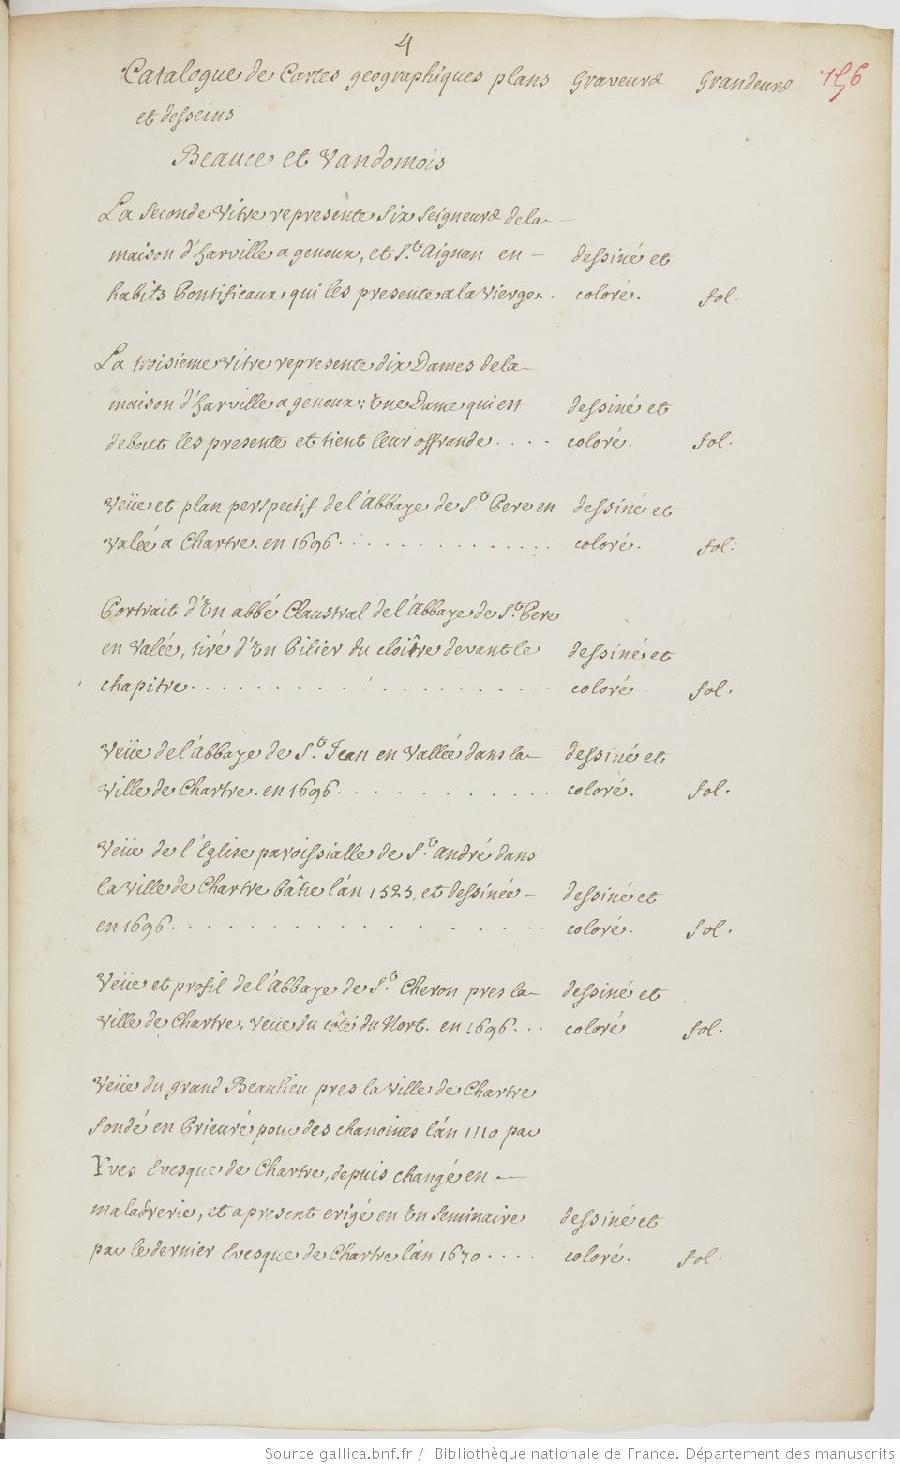 4
Catalogue de Cartes geographiques plans Graveurs Grandeurs 156
et desseins
Beauce et Vandomois
La seconde vitre represente six seigneurs de la
maison d'harville a genoux, et St. Aignan en dessiné et
habits Pontificaux qui les presente a la vierge. coloré. fol.
La troisieme vitre represente dix Dames de la
maison d'harville a genoux; une Dame qui est dessiné et
debout les presente et tient leur offrande.... coloré. fol.
Veüe et plan perspectif de l'Abbaye de St. Pere en dessiné et
valée a Chartre. en 1696. coloré. fol.
Portrait d'un abbé Claustral de l'Abbaye de St. Pere
en valée, tiré d'un Pilier du cloître devant le dessiné et
chapitre. coloré fol.
Veüe de l'abbaye de St. Jean en vallée dans la dessiné et
ville de Chartre. en 1696. coloré. fol.
Veüe de l'Eglise paroissialle de St. André dans
la ville de Chartre bâtie l'an 1525, et dessinée dessiné et
en 1696. coloré. fol.
Veüe et profil de l'abbaye de St. Cheron pres la dessiné et
ville de Chartre. veüe du côté du Nort. en 1696. coloré fol.
Veüe du grand Beaulieu pres la ville de Chartre
fondé en Prieuré pour des chanoines l'an 1110 par
Yves Evesque de Chartre, depuis changé en
maladrerie, et a present erigé en un seminaire dessiné et
par le dernier Evesque de Chartre l'an 1670.... coloré. fol
Source gallica.bnf.fr / Bibliothèque nationale de France. Département des manuscrits